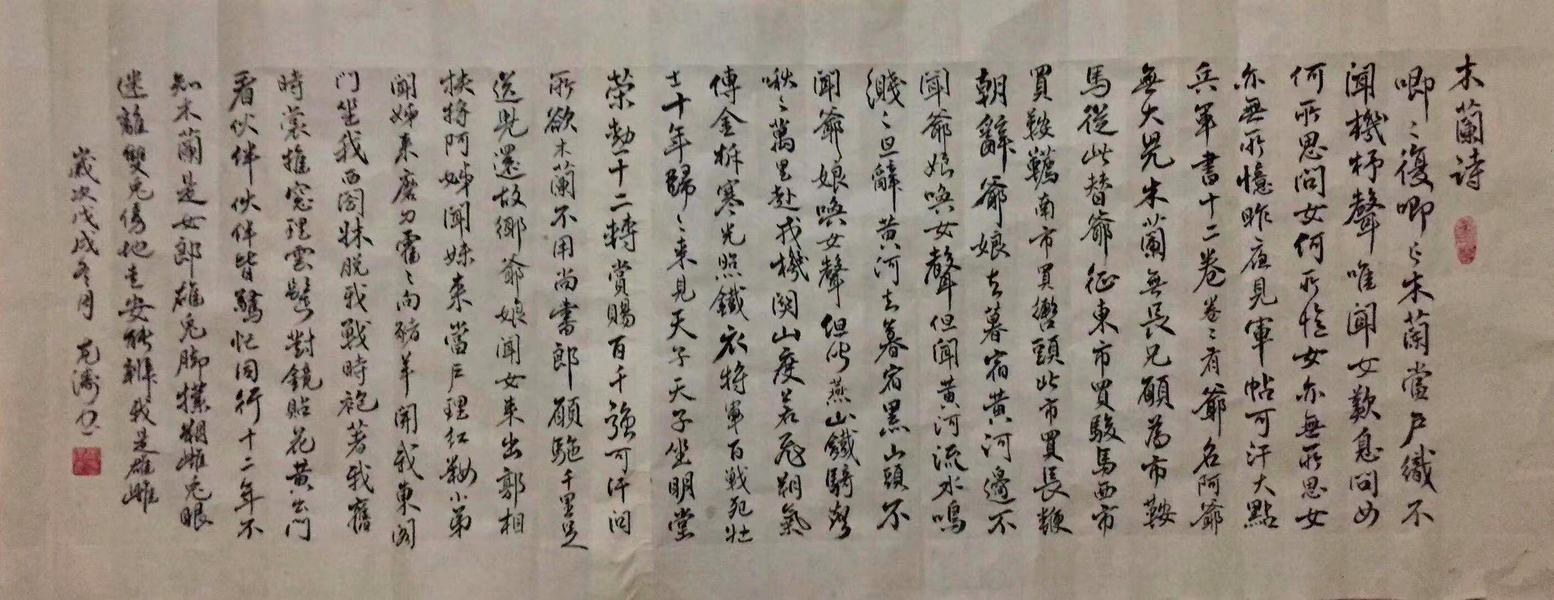 木蘭诗
唧〻復唧〻木蘭當戶織不
聞機杼聲唯聞女歎息问女
何所思问女何所憶女亦無所思女
亦無所憶昨夜見軍帖可汗大點
兵軍書十二卷卷〻有爺名阿爺
無大兒木蘭無長兄願為市鞍
馬從此替爺征東市買駿馬西市
買鞍韉南市買轡頭北市買長鞭
朝辭爺娘去暮宿黃河邊不
聞爺娘喚女聲但聞黃河流水鳴
濺〻旦辭黃河去暮宿黑山頭不
聞爺娘喚女聲但聞燕山鐵騎聲
啾〻萬里赴戎機関山度若飛朔氣
傳金柝寒光照鐵衣将軍百戰死壯
士十年歸〻来見天子天子坐明堂
荣勳十二轉賞賜百千強可汗问
所欲木蘭不用尚書郎願馳千里足
送兒還故鄉爺娘聞女来出郭相
扶将阿姊聞妹来當戶理红妝小弟
聞姊来磨刀霍〻向豬羊開我東閣
门坐我西閣牀脱我戰時袍著我舊
時裳推窓理雲鬢對鏡貼花黃出门
看伙伴伙伴皆驚忙同行十二年不
知木蘭是女郎雄兔脚撲朔雌兔眼
迷離雙兔傍地走安能辨我是雄雌
歲次戊戌冬月